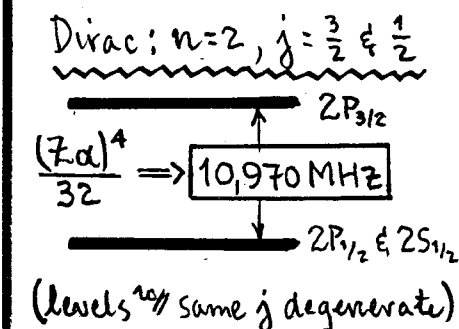 Dirac: n=2, j=3/2 & 1/2
2P3/2
(Zα)^4/32 => 10,970 MHz
2P1/2 & 2S1/2
(levels w/ same j degenerate)